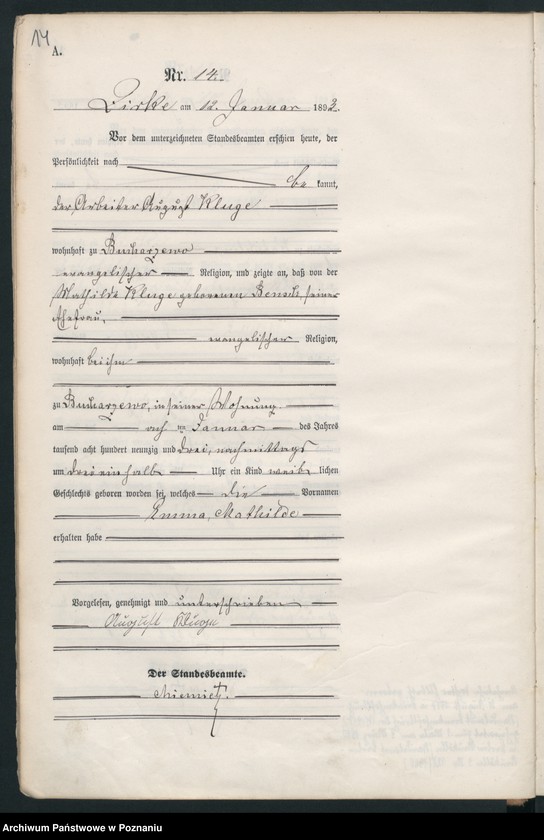 14
A.
Nr. 14.
Zirke am 12. Januar 1893.
Vor dem unterzeichneten Standesbeamten erschien heute, der
Persönlichkeit nach
be kannt,
der Arbeiter August Kluge
wohnhaft zu Bucharzewo
evangelischer Religion, und zeigte an, daß von der
Mathilde Kluge geborenen Bensch, seiner
Ehefrau,
evangelischer Religion,
wohnhaft bei ihm
zu Bucharzewo, in seiner Wohnung
am acht ten Januar des Jahres
tausend acht hundert neunzig und drei, nachmittags
um drei ein halb Uhr ein Kind weib lichen
Geschlechts geboren worden sei, welches die Vornamen
Emma, Mathilde
erhalten habe
Vorgelesen, genehmigt und unterschrieben
August Kluge
Der Standesbeamte.
Archiwum Państwowe w Poznaniu